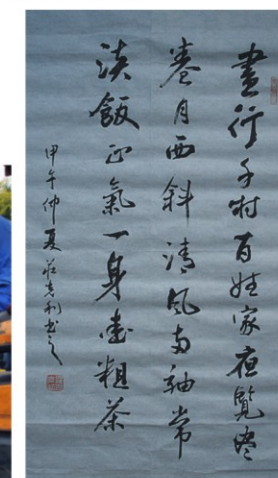 晝行千村百姓家夜覽
卷月西斜清風兩袖常
淡飯正氣一身粗茶
甲午仲夏莊利書之